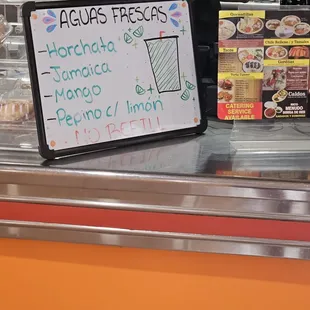 AGUAS FRESCAS
-Horchata
-Jamaica
-Mango
-Pepino c/ limón
NO REFILL
CATERING
SERVICE
AVAILABLE
Caldos
MENUDO